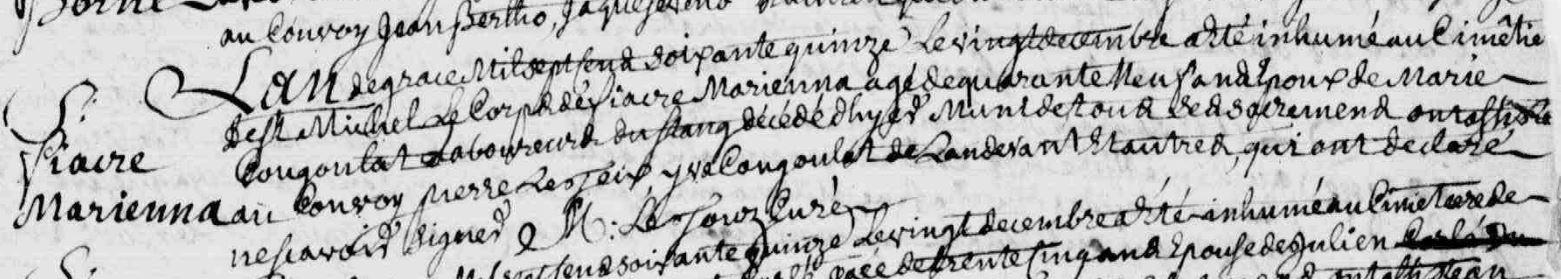 au Convoy Jean Bertho, Jaques
Lan de grace Mil sept Cend soixante quinze Le vingt decembre a été inhumé au Cimêtie
S:
de st Michel Le Corps de fiacre Marienna agé de quarante neuf ans Epoux de Marie
fiacre
Cougoulat Laboureurs du stang décédé d'hyer Muni de tous ses sacremens ont assisté
Marienna
au Convoy pierre yve Cougoulat de Landevant Et autres, qui ont declaré
ne scavoir signer M: Le Curé
sept Cend soixante quinze Le vingt decembre a été inhumé au Cimetiere de
agée de trente Cinq ans Epouse de Julien